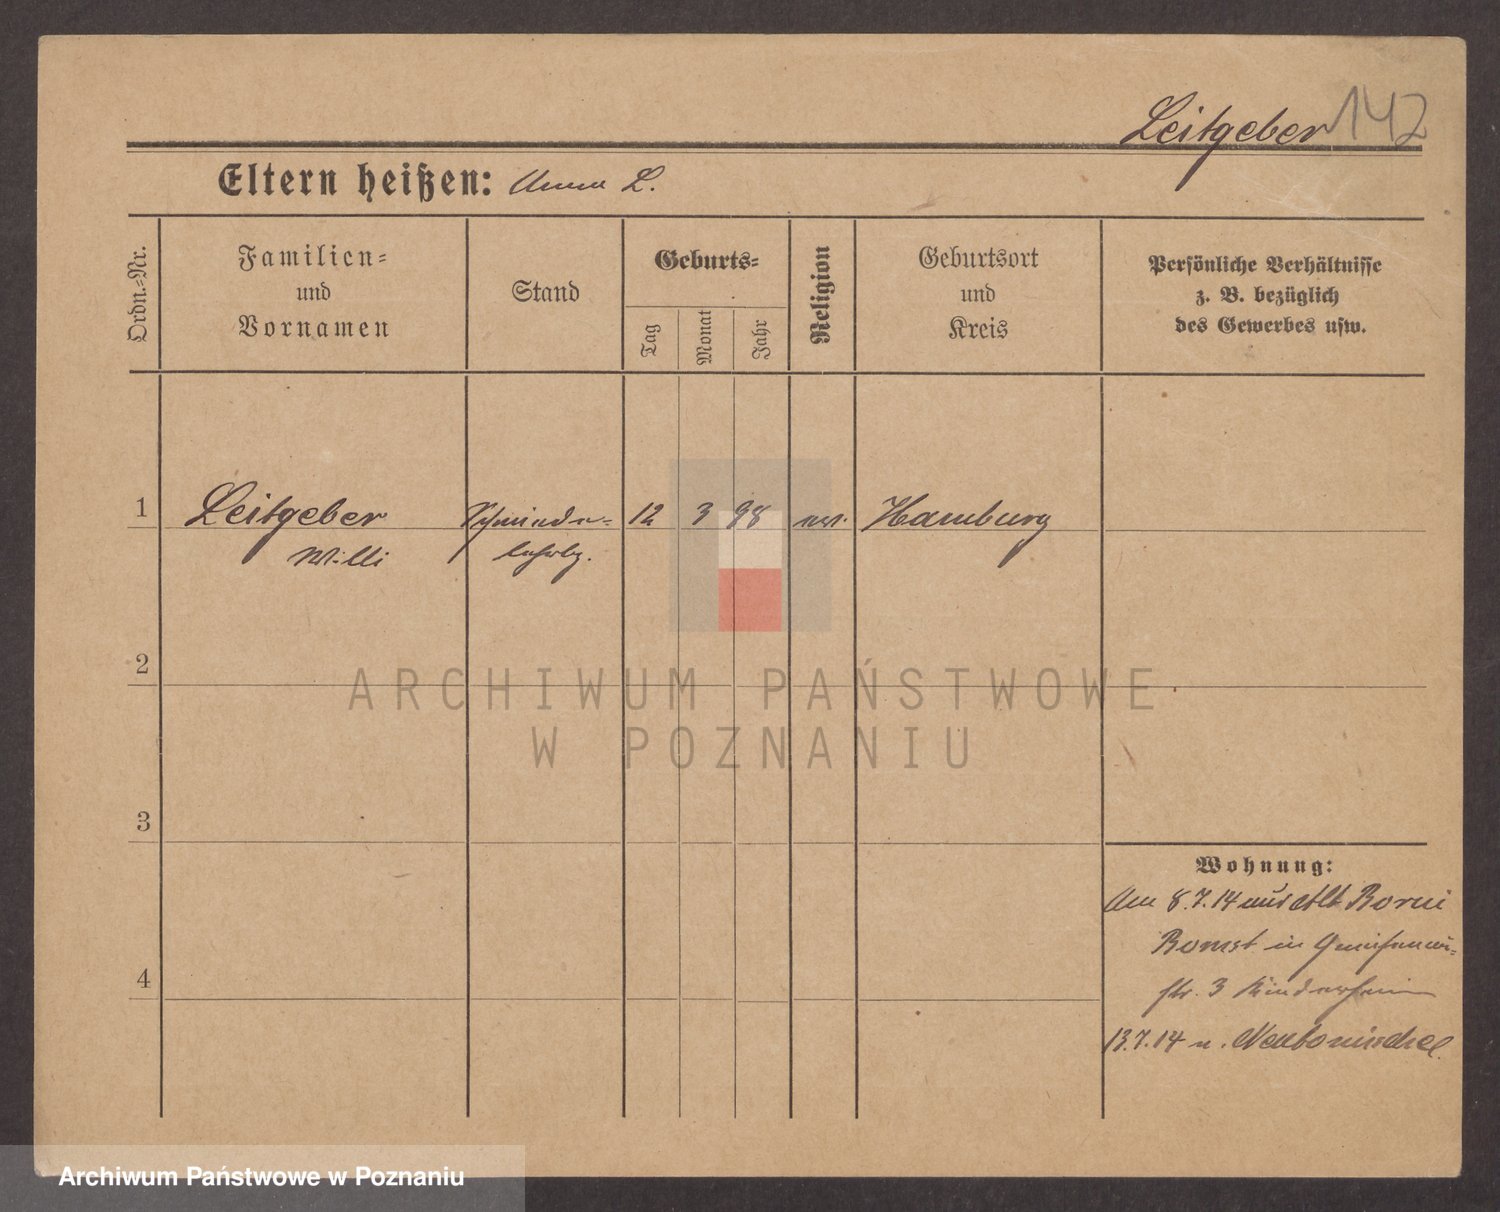 Leitgeber 142
Eltern heißen: Anna L.
Ordn.-Nr.
Familien-
und
Vornamen
Stand
Geburts-
Tag
Monat
Jahr
Religion
Geburtsort
und
Kreis
Persönliche Verhältnisse
z. B. bezüglich
des Gewerbes usw.
1 Leitgeber Schmiede- 12 3 98 ev. Hamburg
Willi lehrlg.
2
ARCHIWUM PAŃSTWOWE
W POZNANIU
3
Wohnung:
Am 8.7.14 aus Alt Borui
Bomst in Gneisenau-
str. 3 Kinderheim
4
13.7.14 n. Neutomischel.
Archiwum Państwowe w Poznaniu